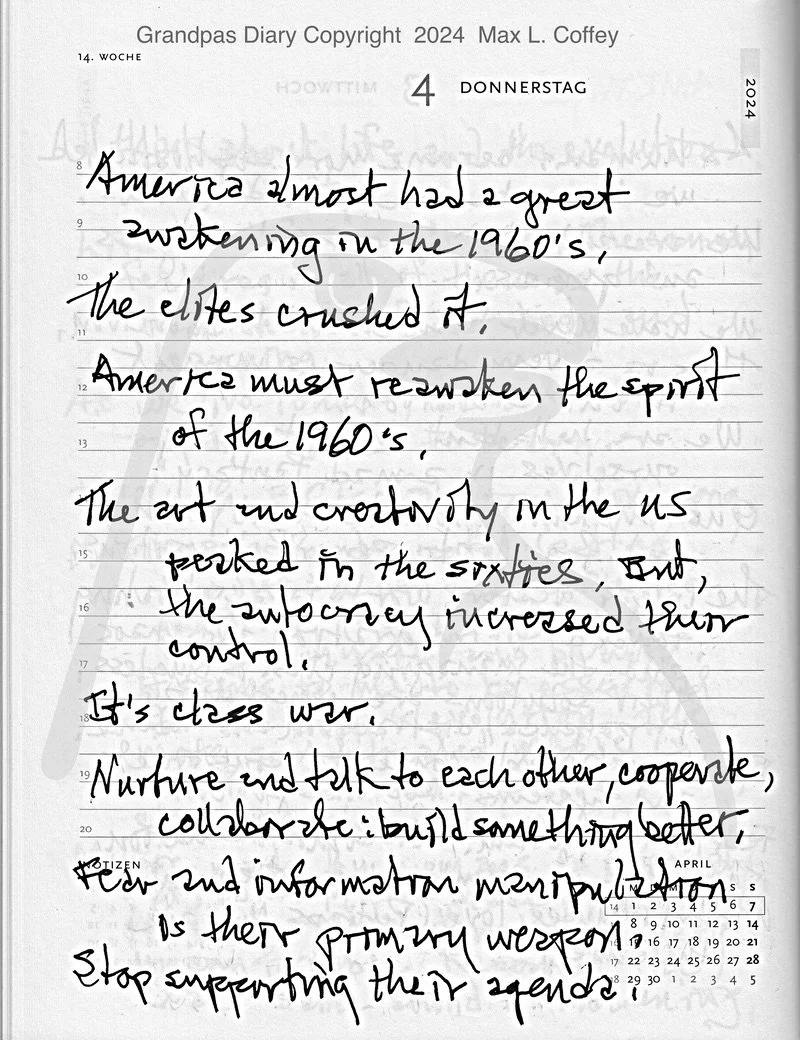 Grandpas Diary Copyright 2024 Max L. Coffey
14. WOCHE
4 DONNERSTAG
2024
8
America almost had a great
9
awakening in the 1960's.
10
The elites crushed it.
11
America must reawaken the spirit
12
of the 1960's.
13
The art and creativity in the US
peaked in the sixties, But,
15
the autocracy increased their
16
control.
17
It's class war.
18
Nurture and talk to each other, cooperate,
19
collaborate: build something better.
20
NOTIZEN
APRIL
Fear and information manipulation
M D M S S
14 1 2 3 4 5 6 7
is their primary weapon.
8 9 10 11 12 13 14
16 17 18 19 20 21
Stop supporting their agenda.
17 22 23 24 25 26 27 28
18 29 30 1 2 3 4 5